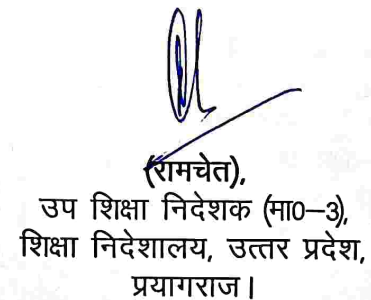 (रामचेत),
उप शिक्षा निदेशक (मा0–3),
शिक्षा निदेशालय, उत्तर प्रदेश,
प्रयागराज।